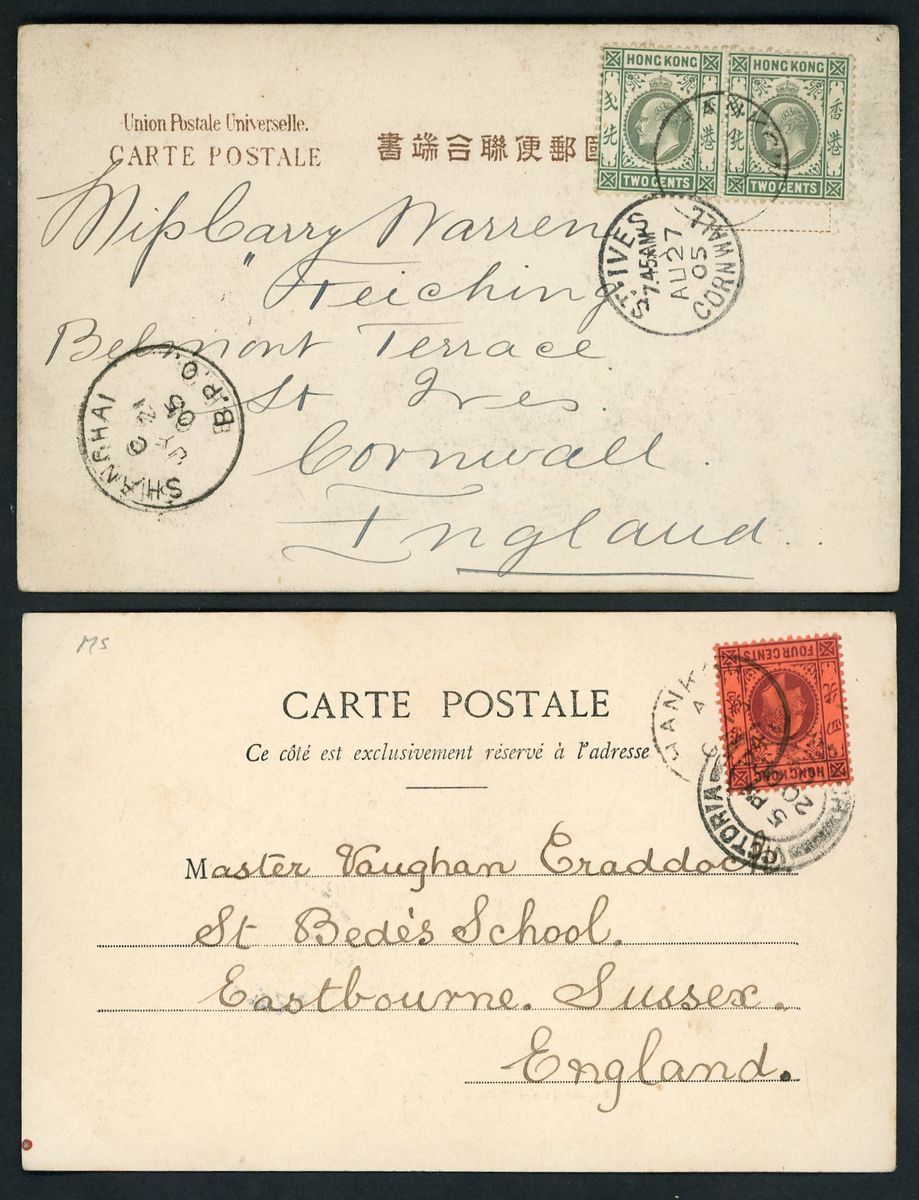 HONG KONG HONG KONG
香港
TWO CENTS TWO CENTS
Union Postale Universelle.
CARTE POSTALE
書端合聯便郵國
Miss Carry Warren
" Teiching
Belmont Terrace
St Ives.
Cornwall.
England.
ST. IVES
7.45AM
AU 27
05
CORNWALL
SHANGHAI
B.P.O.
JY 21
05
MS
CARTE POSTALE
Ce côté est exclusivement réservé à l'adresse
FOUR CENTS
HONG KONG
HANK
VICTORIA
5 PM
20
Master Vaughan Craddock
St Bede's School.
Eastbourne. Sussex.
England.